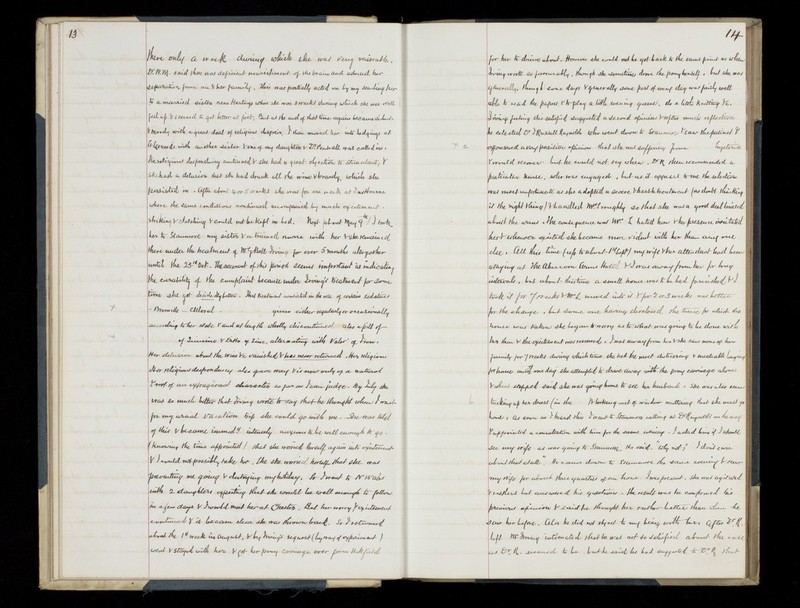 13
there only a week during which she was very miserable.
Dr. W.M. said there was deficient nourishment of the brain and advised her
separation from me & her family. This was partially acted on by my sending her
to a married sister near Hastings where she was 3 weeks during which she was well
fed up & seemed to get better at first; But at the end of that time again became
& moody with a great deal of religious despair. I then moved her into lodgings at
with another sister & one of my daughters & Dr. was called in.
The religious desponding continued & she had a great objection to stimulants, &
she had a delusion that she had drunk all the wine & brandy, which she
persisted in. After about 4 or 5 weeks she was for one week at
where the same conditions continued accompanied by much excitement,
shrieking & clutching & could not be kept in bed. Next (about May 9th) I took
her to Stanmore my sister & a trained nurse with her & she remained
there under the treatment of Mr. Irving for over 5 months altogether
until the 23rd Oct. The account of this period seems important as indicating
the curability of the complaint because under Irving's treatment for some
time she got decidedly better. This treatment consisted in the use of certain sedatives
- Bromide - Chloral given either regularly or occasionally
according to her state & and at length wholly discontinued also a pill of
of Quinine & of Zinc, alternating with Valer of Iron.
Her delusion about the wine &c vanished & has never returned. Her religious
despondency also gave way & is now only of a natural
& not of an exaggerated character as far as I can judge. By July she
was so much better that Irving wrote to say that he thought when I went
for my usual vacation trip she could go with me. She was told
of this & became immedy intensely anxious to be well enough to go.
(Knowing the time appointed) that she worried herself again into excitement
& I could not possibly take her. She she worried herself that she was
preventing me going & destroying my holiday. So I went to N. Wales
with 2 daughters expecting that she would be well enough to follow
in a few days & I would meet her at Chester. But her worry & excitement
continued & it became clear she was thrown back. So I returned
about the 1st week in August, & by Irving's request (by way of experiment)
went & stayed with her & got her pony carriage over from
14
for her to drive about. However she could not be got back to the same point as when
Irving wrote so favourably, though she sometimes drove the pony herself, but she was
generally, though some days & generally some part of every day was fairly well
able to read the papers & to play a little evening games, do a little knitting &c.
Irving feeling dissatisfied suggested a second opinion & after much reflection
he selected Dr. Russell Reynolds who went down to Stanmore, & saw the patient &
expressed a very positive opinion that she was suffering from hysteria
& would recover but he could not say when. Dr. R. then recommended a
particular nurse, who was engaged, but as it appears to me the selection
was most unfortunate as she adopted a severe & harsh treatment (no doubt thinking
it the right thing) & handled Mrs. L roughly so that she was a good deal bruised
about the arms. The consequence was Mrs. L hated her & her presence irritated
her & whenever excited she became more violent with her than any one
else. All this time (up to about 1st Septr) my wife & her attendant had been
staying at the Abercorn Arms Hotel & I was away from her for long
intervals, but about this time a small house was to be had furnished, & I
took it for 7 weeks & Mrs. L moved into it & for 2 or 3 weeks was better
for the change, but some one having disclosed the time for which the
house was taken she began to worry as to what was going to be done with
her then & the excitement was renewed. I was away from her & she saw none of her
family for 7 weeks during which time she had the most distressing & insatiable longing
for home until one day she attempted to drive away with the pony carriage alone
& when stopped said she was going home to see her husband. She was also seen
tucking up her dress (in the & looking out of window muttering that she must go
home. As soon as I heard this I went to Stanmore calling at Dr. Reynolds on the way
& appointed a consultation with him for the same evening. I asked him if I should
see my wife as was going to Stanmore. He said, "why not?" "I don't care
about that at all." He came down to Stanmore the same evening & saw
my wife for about three quarters of an hour. I was present. She was agitated
& restless but answered his questions. The result was he confirmed his
previous opinion & said he thought her rather better than when he
saw her before. Also he did not object to my being with her. After Dr. R.
left Mr. Irving intimated that he was not so satisfied about the case
as Dr. R. seemed to be but he said he had suggested to Dr. R. that